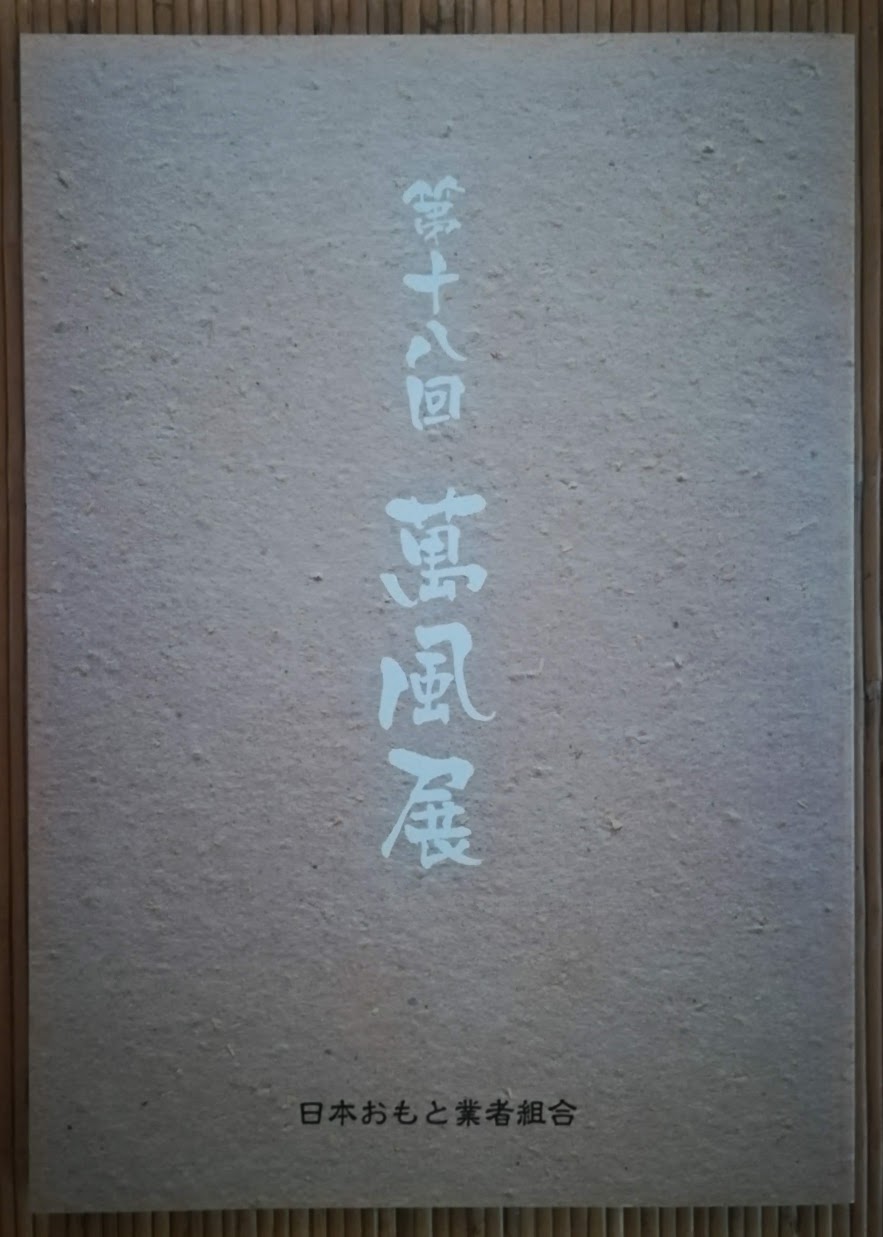 第十八回 萬風展
日本おもと業者組合